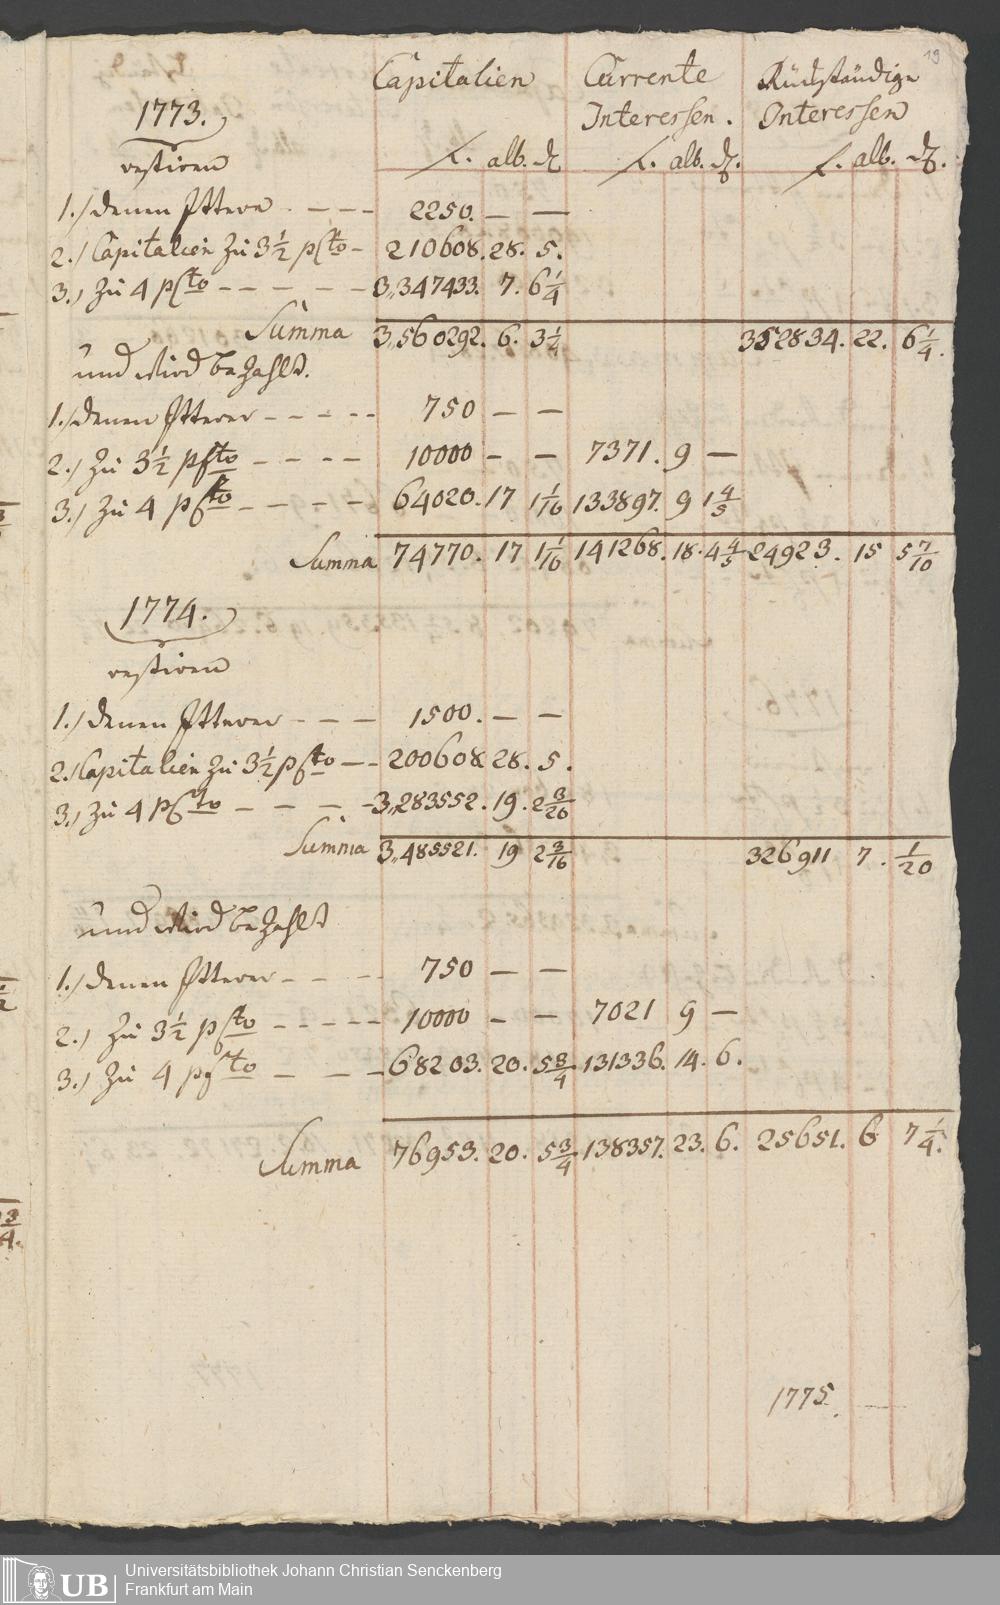 19
Capitalien Currente Rückständige
1773. Interessen. Interessen
restiren f. alb. d. f. alb. d. f. alb. d.
1.) denen Itterer - - - 2250. — —
2.) Capitalien zu 3 1/2 pCto - 210608. 28. 5.
3.) zu 4 pCto - - - - - 3,,347433. 7. 6 1/4
Summa 3,,560292. 6. 3 1/4 352834. 22. 6 1/4.
und wird bezahlt.
1.) denen Itterer - - - - - 750 — —
2.) zu 3 1/2 pCto - - - - 10000 - — 7371. 9 —
3.) zu 4 pCto - - - - 64020. 17 1 1/10 133897. 9 1 4/5
Summa 74770. 17 1 1/10 141268. 18. 4 4/5 24923. 15 5 7/10
1774.
restiren
1.) denen Itterer - - - 1500. — —
2.) Capitalien zu 3 1/2 pCto - - 200608 28. 5.
3.) zu 4 pCto - - - - 3,,283552. 19. 2 3/20
Summa 3,,485521. 19 2 3/10 326911 7. 1/20
und wird bezahlt
1.) denen Itterer - - - - 750 — —
2.) zu 3 1/2 pCto - - - - - 10000 - — 7021 9 —
3.) zu 4 pCto - - - 68203. 20. 5 3/4 131336. 14. 6.
Summa 76953. 20. 5 3/4 138357. 23. 6. 25651. 6 7 1/4.
1775.
UB
Universitätsbibliothek Johann Christian Senckenberg
Frankfurt am Main